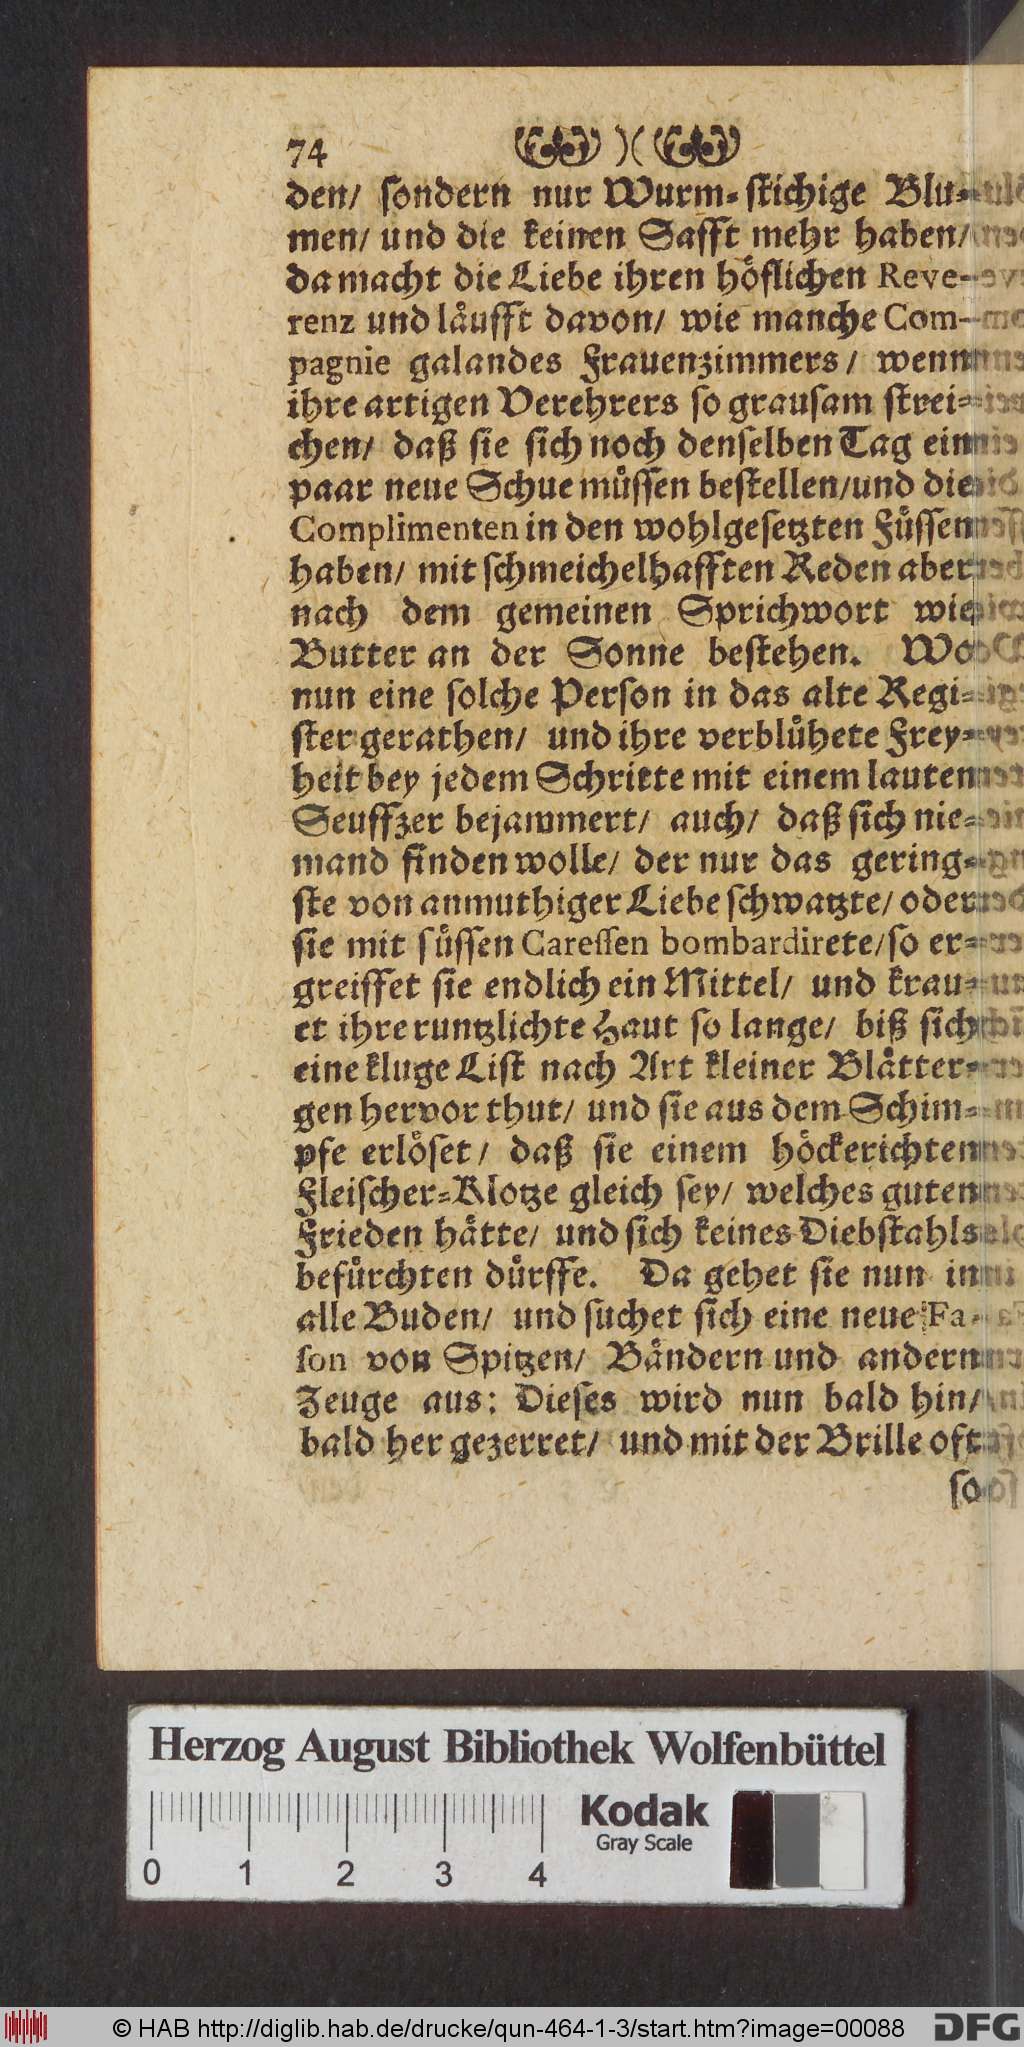 74
den/ ſondern nur Wurm-ſtichige Blu-
men/ und die keinen Safft mehr haben/
da macht die Liebe ihren höflichen Reve-
renz und läufft davon/ wie manche Com-
pagnie galandes Frauenzimmers/ wenn
ihre artigen Verehrers ſo grauſam ſtrei-
chen/ daß ſie ſich noch denſelben Tag ein
paar neue Schue müſſen beſtellen/und die
Complimenten in den wohlgeſetzten Füſſen
haben/ mit ſchmeichelhafften Reden aber
nach dem gemeinen Sprichwort wie
Butter an der Sonne beſtehen. Wo
nun eine ſolche Perſon in das alte Regi-
ſter gerathen/ und ihre verblühete Frey-
heit bey jedem Schritte mit einem lauten
Seuffzer bejammert/ auch/ daß ſich nie-
mand finden wolle/ der nur das gering-
ſte von anmuthiger Liebe ſchwatzte/ oder
ſie mit ſüſſen Careſſen bombardirete/ſo er-
greiffet ſie endlich ein Mittel/ und krau-
et ihre runtzlichte Haut ſo lange/ biß ſich
eine kluge Liſt nach Art kleiner Blätter-
gen hervor thut/ und ſie aus dem Schim-
pfe erlöſet/ daß ſie einem höckerichten
Fleiſcher-Klotze gleich ſey/ welches guten
Frieden hätte/ und ſich keines Diebſtahls
befürchten dürffe. Da gehet ſie nun in
alle Buden/ und ſuchet ſich eine neue Fa-
ſon von Spitzen/ Bändern und andern
Zeuge aus: Dieſes wird nun bald hin/
bald her gezerret/ und mit der Brille oft
ſo
Herzog August Bibliothek Wolfenbüttel
Kodak
Gray Scale
0 1 2 3 4
© HAB http://diglib.hab.de/drucke/qun-464-1-3/start.htm?image=00088
DFG